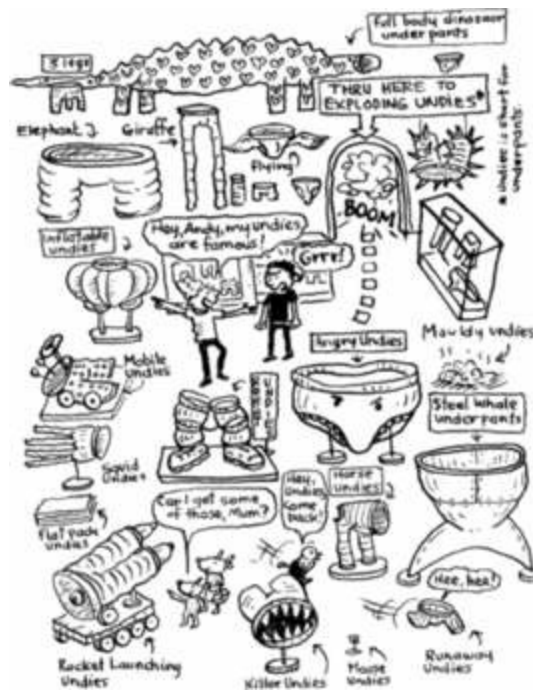 full body dinosaur
underpants
8 legs
THRU HERE TO
EXPLODING UNDIES*
* undies is short for
underpants.
Elephant
Giraffe
Flying
BOOM
Inflatable
undies
Hey, Andy, my undies
are famous!
Grrr!
Mobile
undies
Angry Undies
Mouldy undies
Steel Whale
underpants
Squid
Undies
Flat pack
undies
Can I get some
of those, Mum?
Hey,
Undies,
come
back!
Horse
undies
Hee, hee!
Rocket Launching
Undies
Killer Undies
Mouse
undies
Runaway
undies